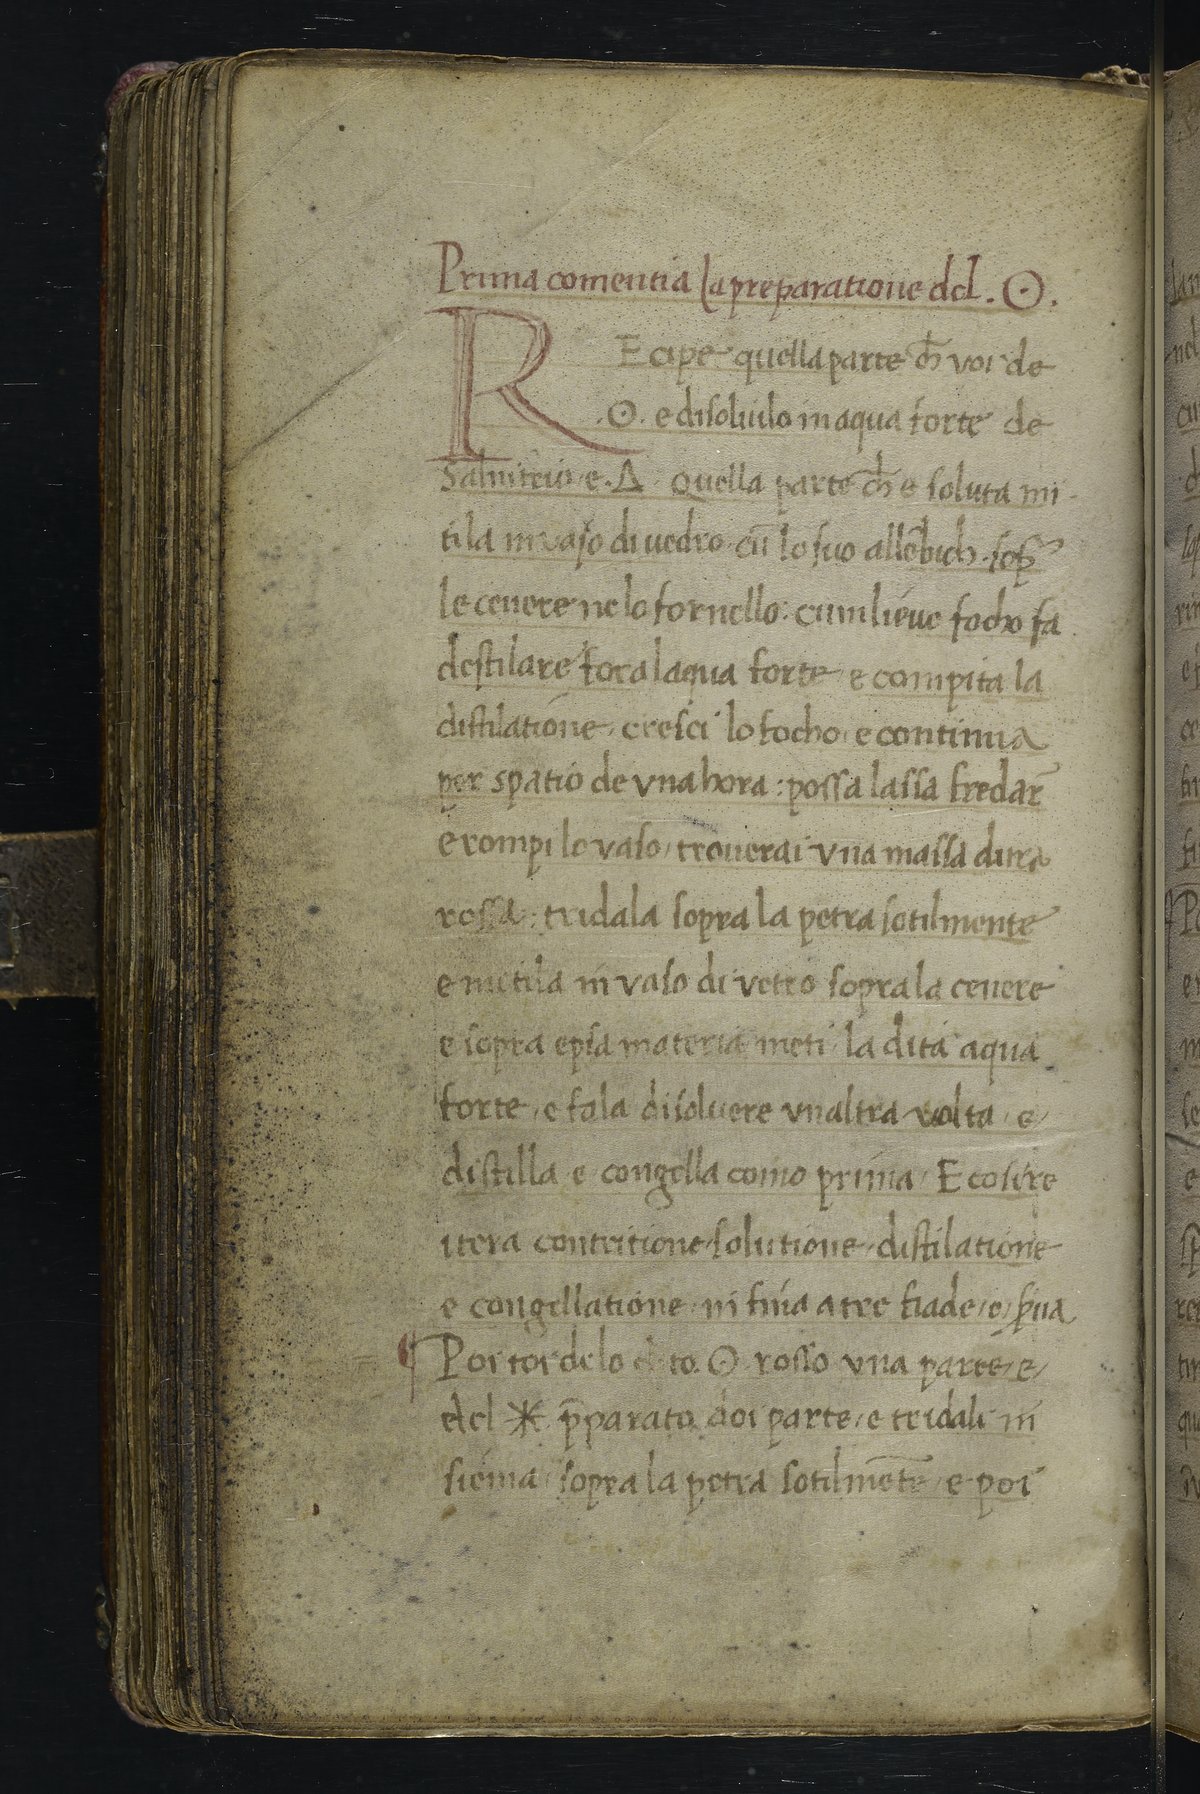 Prima comentia la preparatione del .☉.
REcipe quella parte ch̄ voi de
.☉. e disoluilo in aqua forte de
Salnitrio e .Δ. Quella parte ch̄ e soluta mi
tila in vaso di uedro cū lo suo allēbich. sop̄
le cenere ne lo fornello: cum lieue focho fa
destilare foca laqua forte e compita la
distilatione, cresci lo focho, e continua
per spatio de vna hora: possa lassa fredar̄
e rompi lo vaso, trouerai vna massa dura
rossa: tridala sopra la petra sotilmente
e mitila in vaso di vetro sopra la cenere
e sopra epsa materia meti la dita aqua
forte, e fala disoluere vnaltra volta, e,
distilla e congella como prima, E cosi re
itera contritione, solutione, distilatione
e congellatione, in fina a tre fiade, e,
¶ Poi toi de lo dito ☉ rosso vna parte, e,
del ✶ p̄parato doi parte, e tridali in
siema, sopra la petra sotilmēte, e poi